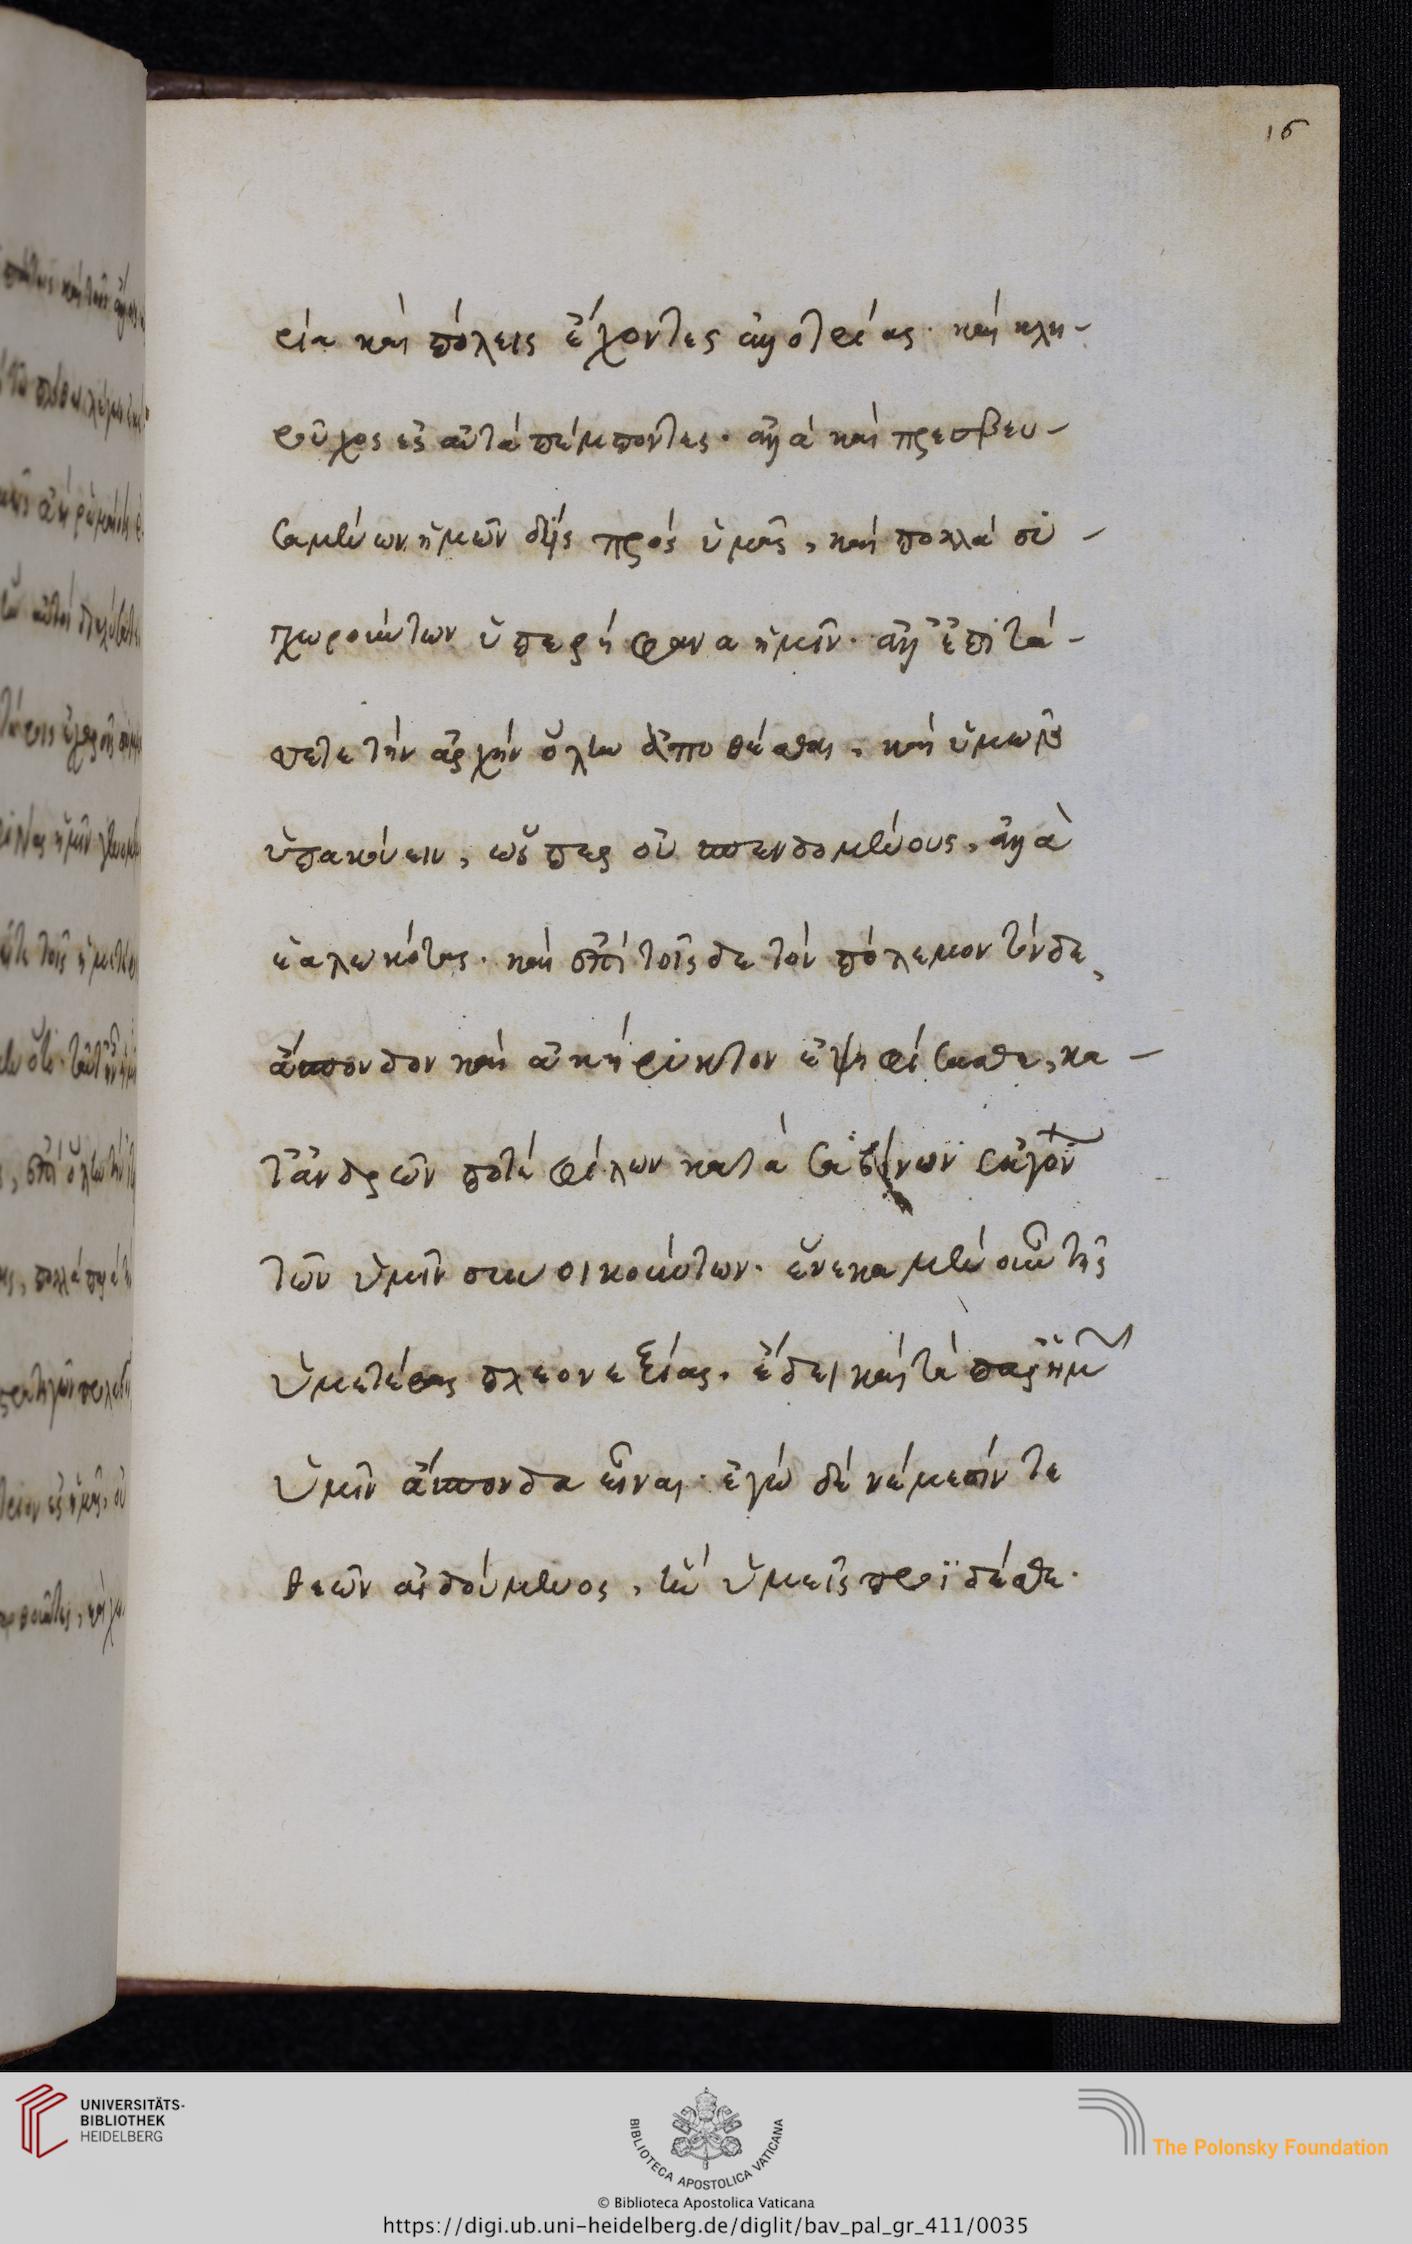 16
ρία καὶ πόλεις ἔχοντες ἀλλοτρίας· καὶ κλη-
ρούχος ἐς αὐτὰ πέμποντες· ἀλλὰ καὶ πρεσβευ-
σαμένων ἡμῶν δὶς πρὸς ὑμᾶς, καὶ πολλὰ συ-
γχωρούντων ὑπερήφανα ἡμῖν· ἀλλ' ἐπιτά-
σσετε τὴν ἀρχὴν ὅλην ἀποθέσθαι, καὶ ὑμῶν
ὑπακούειν, ὥσπερ οὐ σπενδομένους, ἀλλὰ
ἑαλωκότας. καὶ ἐπὶ τοῖσδε τὸν πόλεμον τόνδε,
ἄσπονδον καὶ ἀκήρυκτον ἐψηφίσασθε, κα-
τ' ἀνδρῶν ποτὲ φίλων κατὰ σαβίνων ἐκγόνων
τῶν ὑμῖν συνοικούντων. ἕνεκα μὲν οὖν τῆς
ὑμετέρας πλεονεξίας, ἔδει καὶ τὰ παρ' ἡμῶν
ὑμῖν ἄσπονδα εἶναι· ἐγὼ δὲ νέμεσίν τε
θεῶν αἰδούμενος, ἣν ὑμεῖς περιϊδέσθε.
UNIVERSITÄTS-
BIBLIOTHEK
HEIDELBERG
BIBLIOTECA APOSTOLICA VATICANA
© Biblioteca Apostolica Vaticana
The Polonsky Foundation
https://digi.ub.uni-heidelberg.de/diglit/bav_pal_gr_411/0035